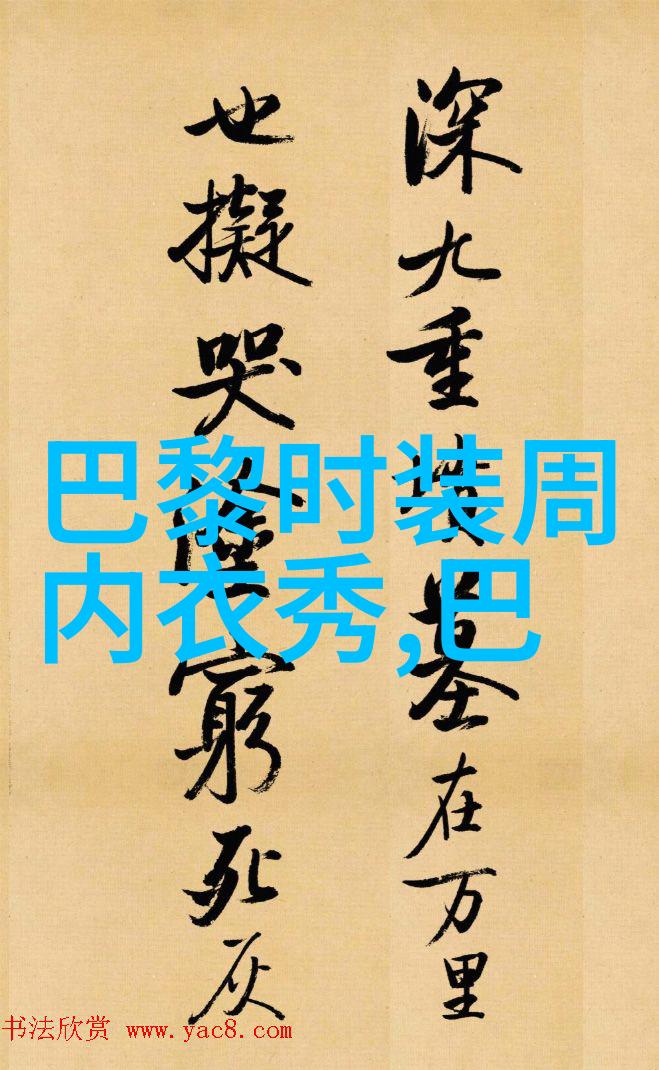 深九重坟墓在万里
也擬哭塗窮死灰
巴黎时装周
内衣秀,巴
书法欣赏 www.yac8.com